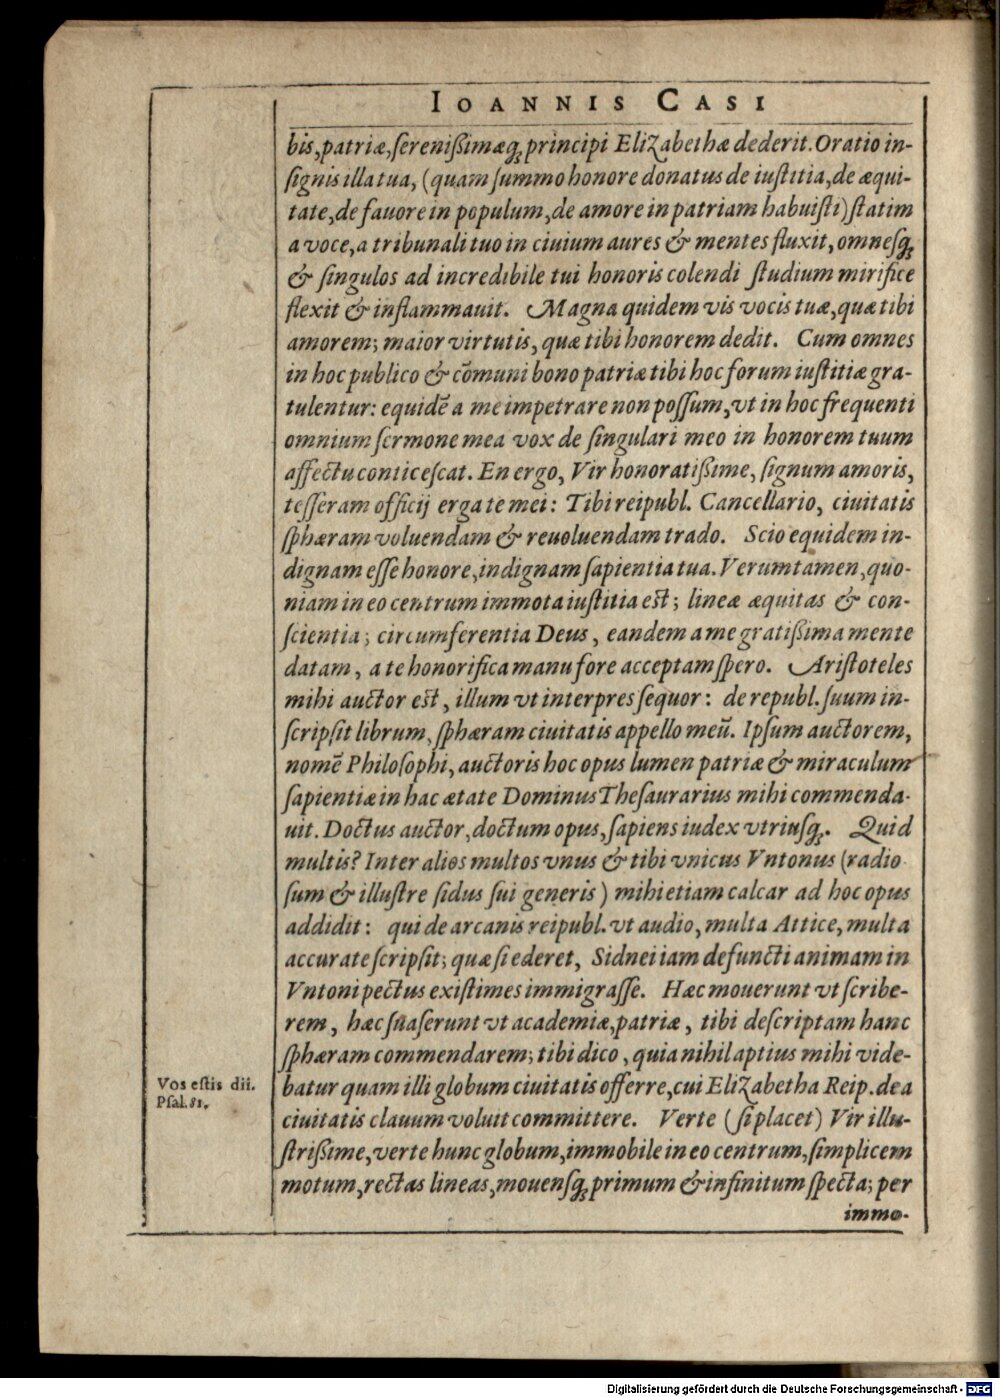 IOANNIS CASI
bis, patriæ, ſereniſsimæq́; principi Elizabethæ dederit. Oratio in-
ſignis illa tua, (quam ſummo honore donatus de iuſtitia, de æqui-
tate, de fauore in populum, de amore in patriam habuiſti) ſtatim
a voce, a tribunali tuo in ciuium aures & mentes fluxit, omneſq́;
& ſingulos ad incredibile tui honoris colendi ſtudium mirifice
flexit & inflammauit. Magna quidem vis vocis tuæ, quæ tibi
amorem; maior virtutis, quæ tibi honorem dedit. Cum omnes
in hoc publico & cõmuni bono patriæ tibi hoc forum iuſtitiæ gra-
tulentur: equidẽ a me impetrare non poſſum, vt in hoc frequenti
omnium ſermone mea vox de ſingulari meo in honorem tuum
affectu conticeſcat. En ergo, Vir honoratiſsime, ſignum amoris,
teſſeram officij erga te mei: Tibi reipubl. Cancellario, ciuitatis
ſphæram voluendam & reuoluendam trado. Scio equidem in-
dignam eſſe honore, indignam ſapientia tua. Verumtamen, quo-
niam in eo centrum immota iuſtitia eſt; lineæ æquitas & con-
ſcientia; circumferentia Deus, eandem a me gratiſsima mente
datam, a te honorifica manu fore acceptam ſpero. Ariſtoteles
mihi auctor eſt, illum vt interpres ſequor: de republ. ſuum in-
ſcripſit librum, ſphæram ciuitatis appello meũ. Ipſum auctorem,
nomẽ Philoſophi, auctoris hoc opus lumen patriæ & miraculum
ſapientiæ in hac ætate Dominus Theſaurarius mihi commenda-
uit. Doctus auctor, doctum opus, ſapiens iudex vtriuſq́;. Quid
multis? Inter alios multos vnus & tibi vnicus Vntonus (radio
ſum & illuſtre ſidus ſui generis) mihi etiam calcar ad hoc opus
addidit: qui de arcanis reipubl. vt audio, multa Attice, multa
accurate ſcripſit; quæ ſi ederet, Sidnei iam defuncti animam in
Vntoni pectus exiſtimes immigraſſe. Hæc mouerunt vt ſcribe-
rem, hæc ſuaſerunt vt academiæ, patriæ, tibi deſcriptam hanc
ſphæram commendarem; tibi dico, quia nihil aptius mihi vide-
Vos eſtis dii.
Pſal. 81.
batur quam illi globum ciuitatis offerre, cui Elizabetha Reip. dea
ciuitatis clauum voluit committere. Verte (ſi placet) Vir illu-
ſtriſsime, verte hunc globum, immobile in eo centrum, ſimplicem
motum, rectas lineas, mouenſq́; primum & infinitum ſpecta; per
immo-
Digitalisierung gefördert durch die Deutsche Forschungsgemeinschaft - DFG